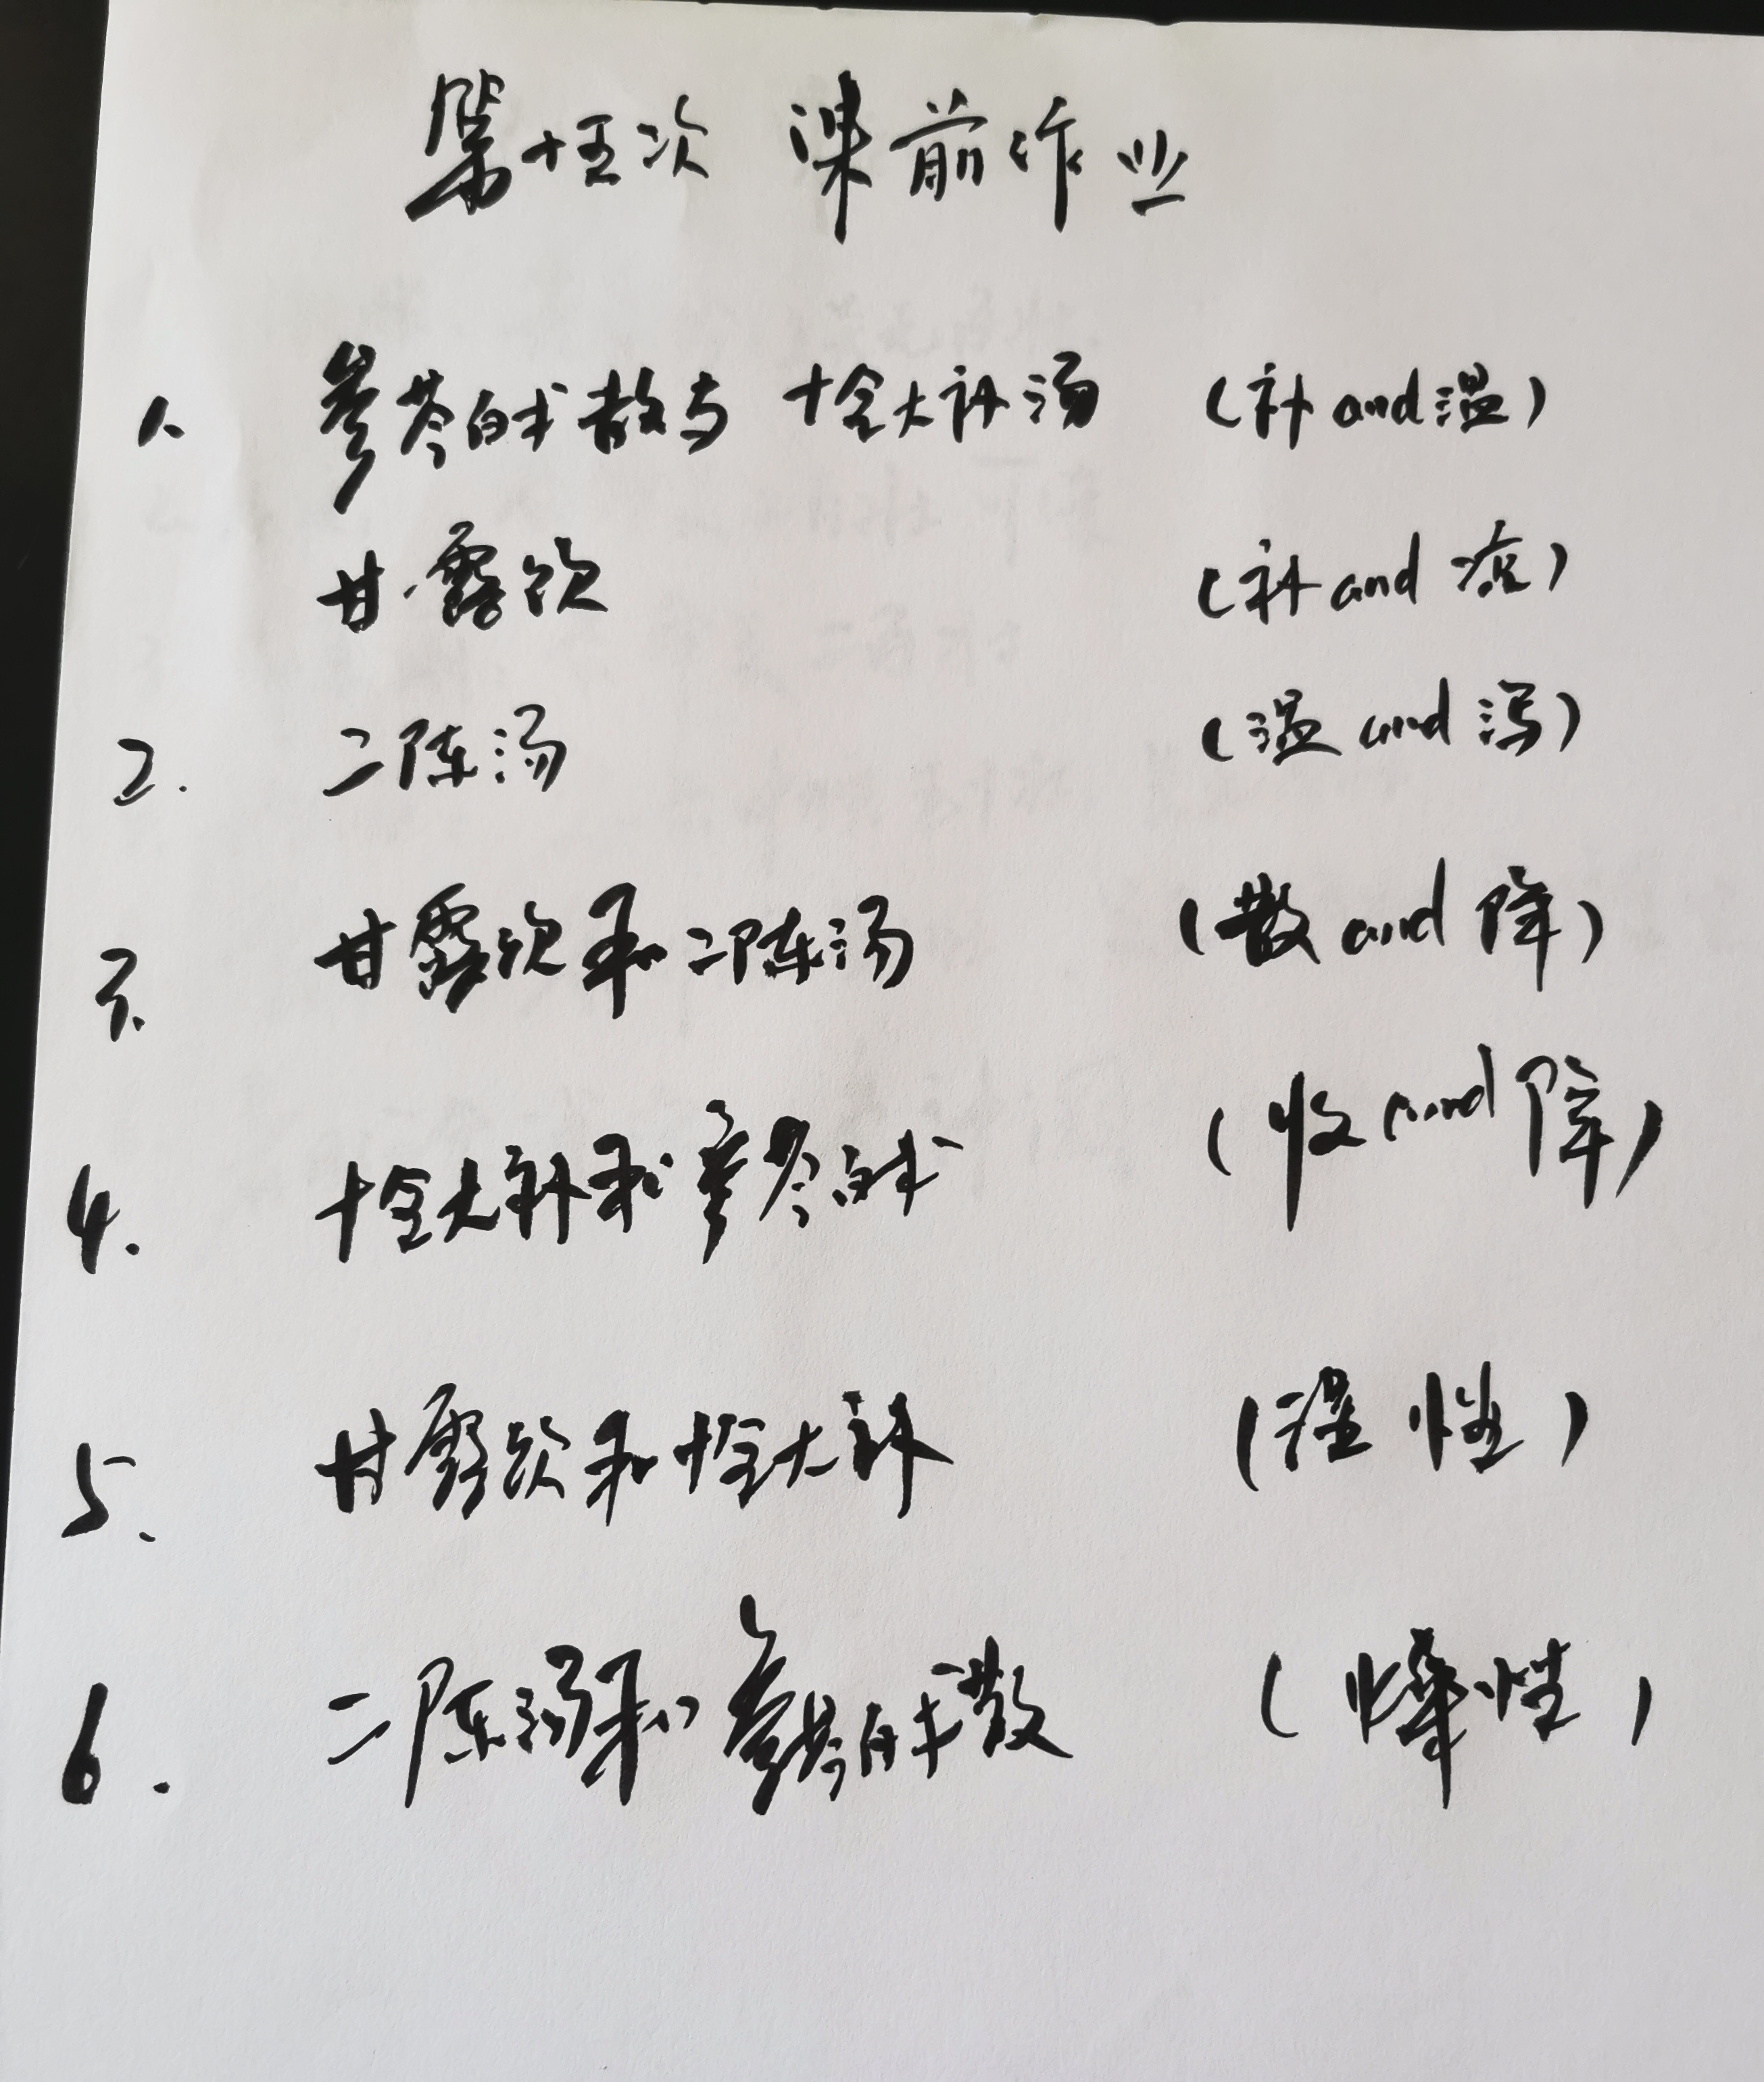 第十五次 课前作业
1. 参苓白术散与 十全大补汤 (补and温)
甘露饮 (补and凉)
2. 二陈汤 (温and泻)
3. 甘露饮和二陈汤 (散and降)
4. 十全大补和参苓白术 (收and降)
5. 甘露饮和十全大补 (湿性)
6. 二陈汤和参苓白术散 (燥性)